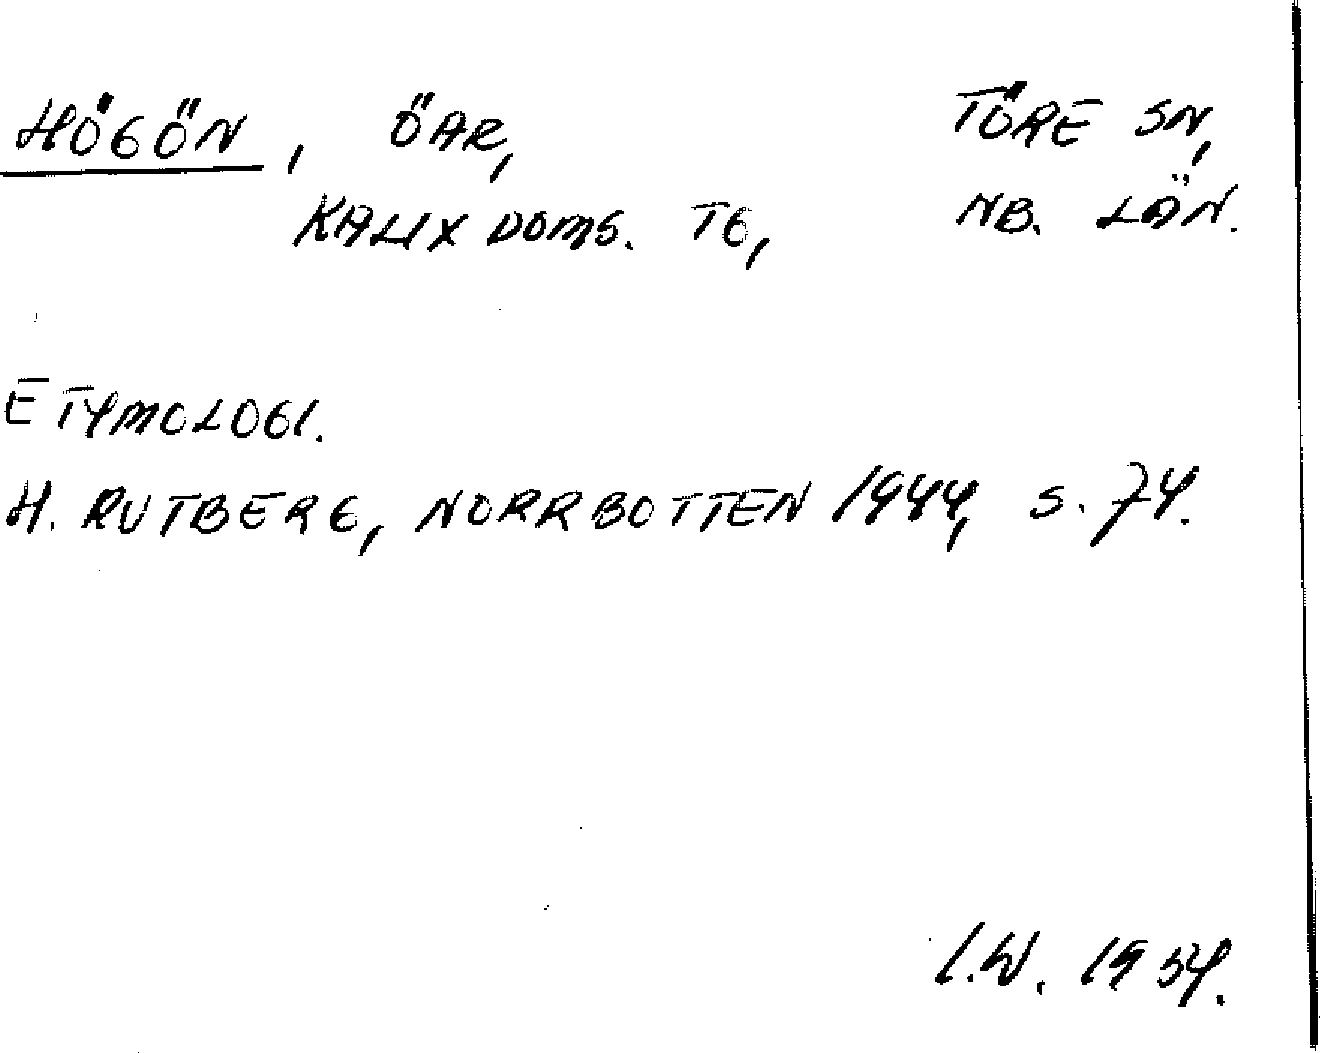 HÖGÖN, ÖAR, TÖRE SN,
KALIX DOMS. TG, NB. LÄN.
ETYMOLOGI.
H. RUTBERG, NORRBOTTEN 1944, s. 74.
I.W. 1954.